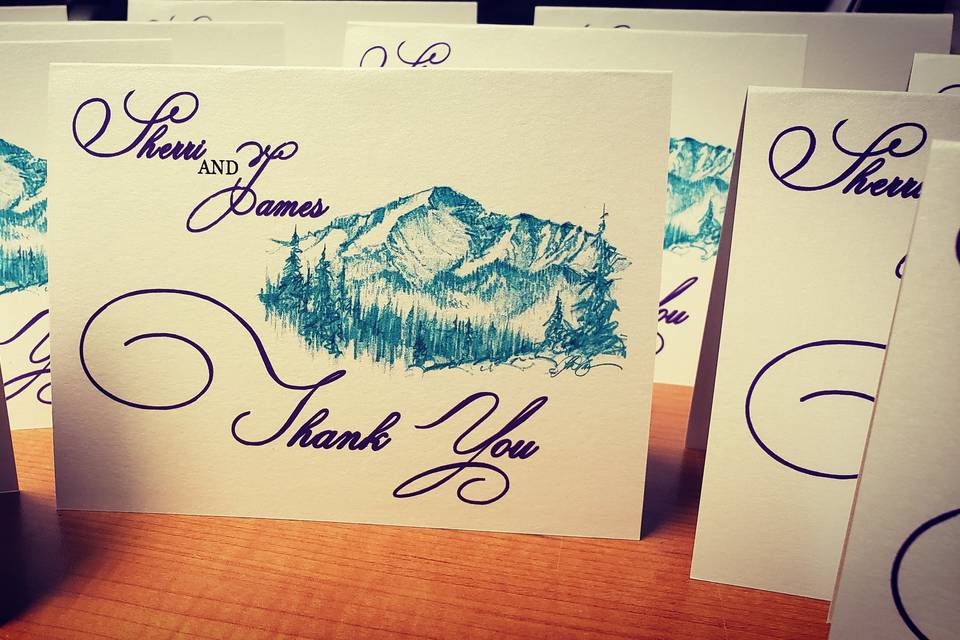 Sherri
AND
James
Thank You
Sherri
You